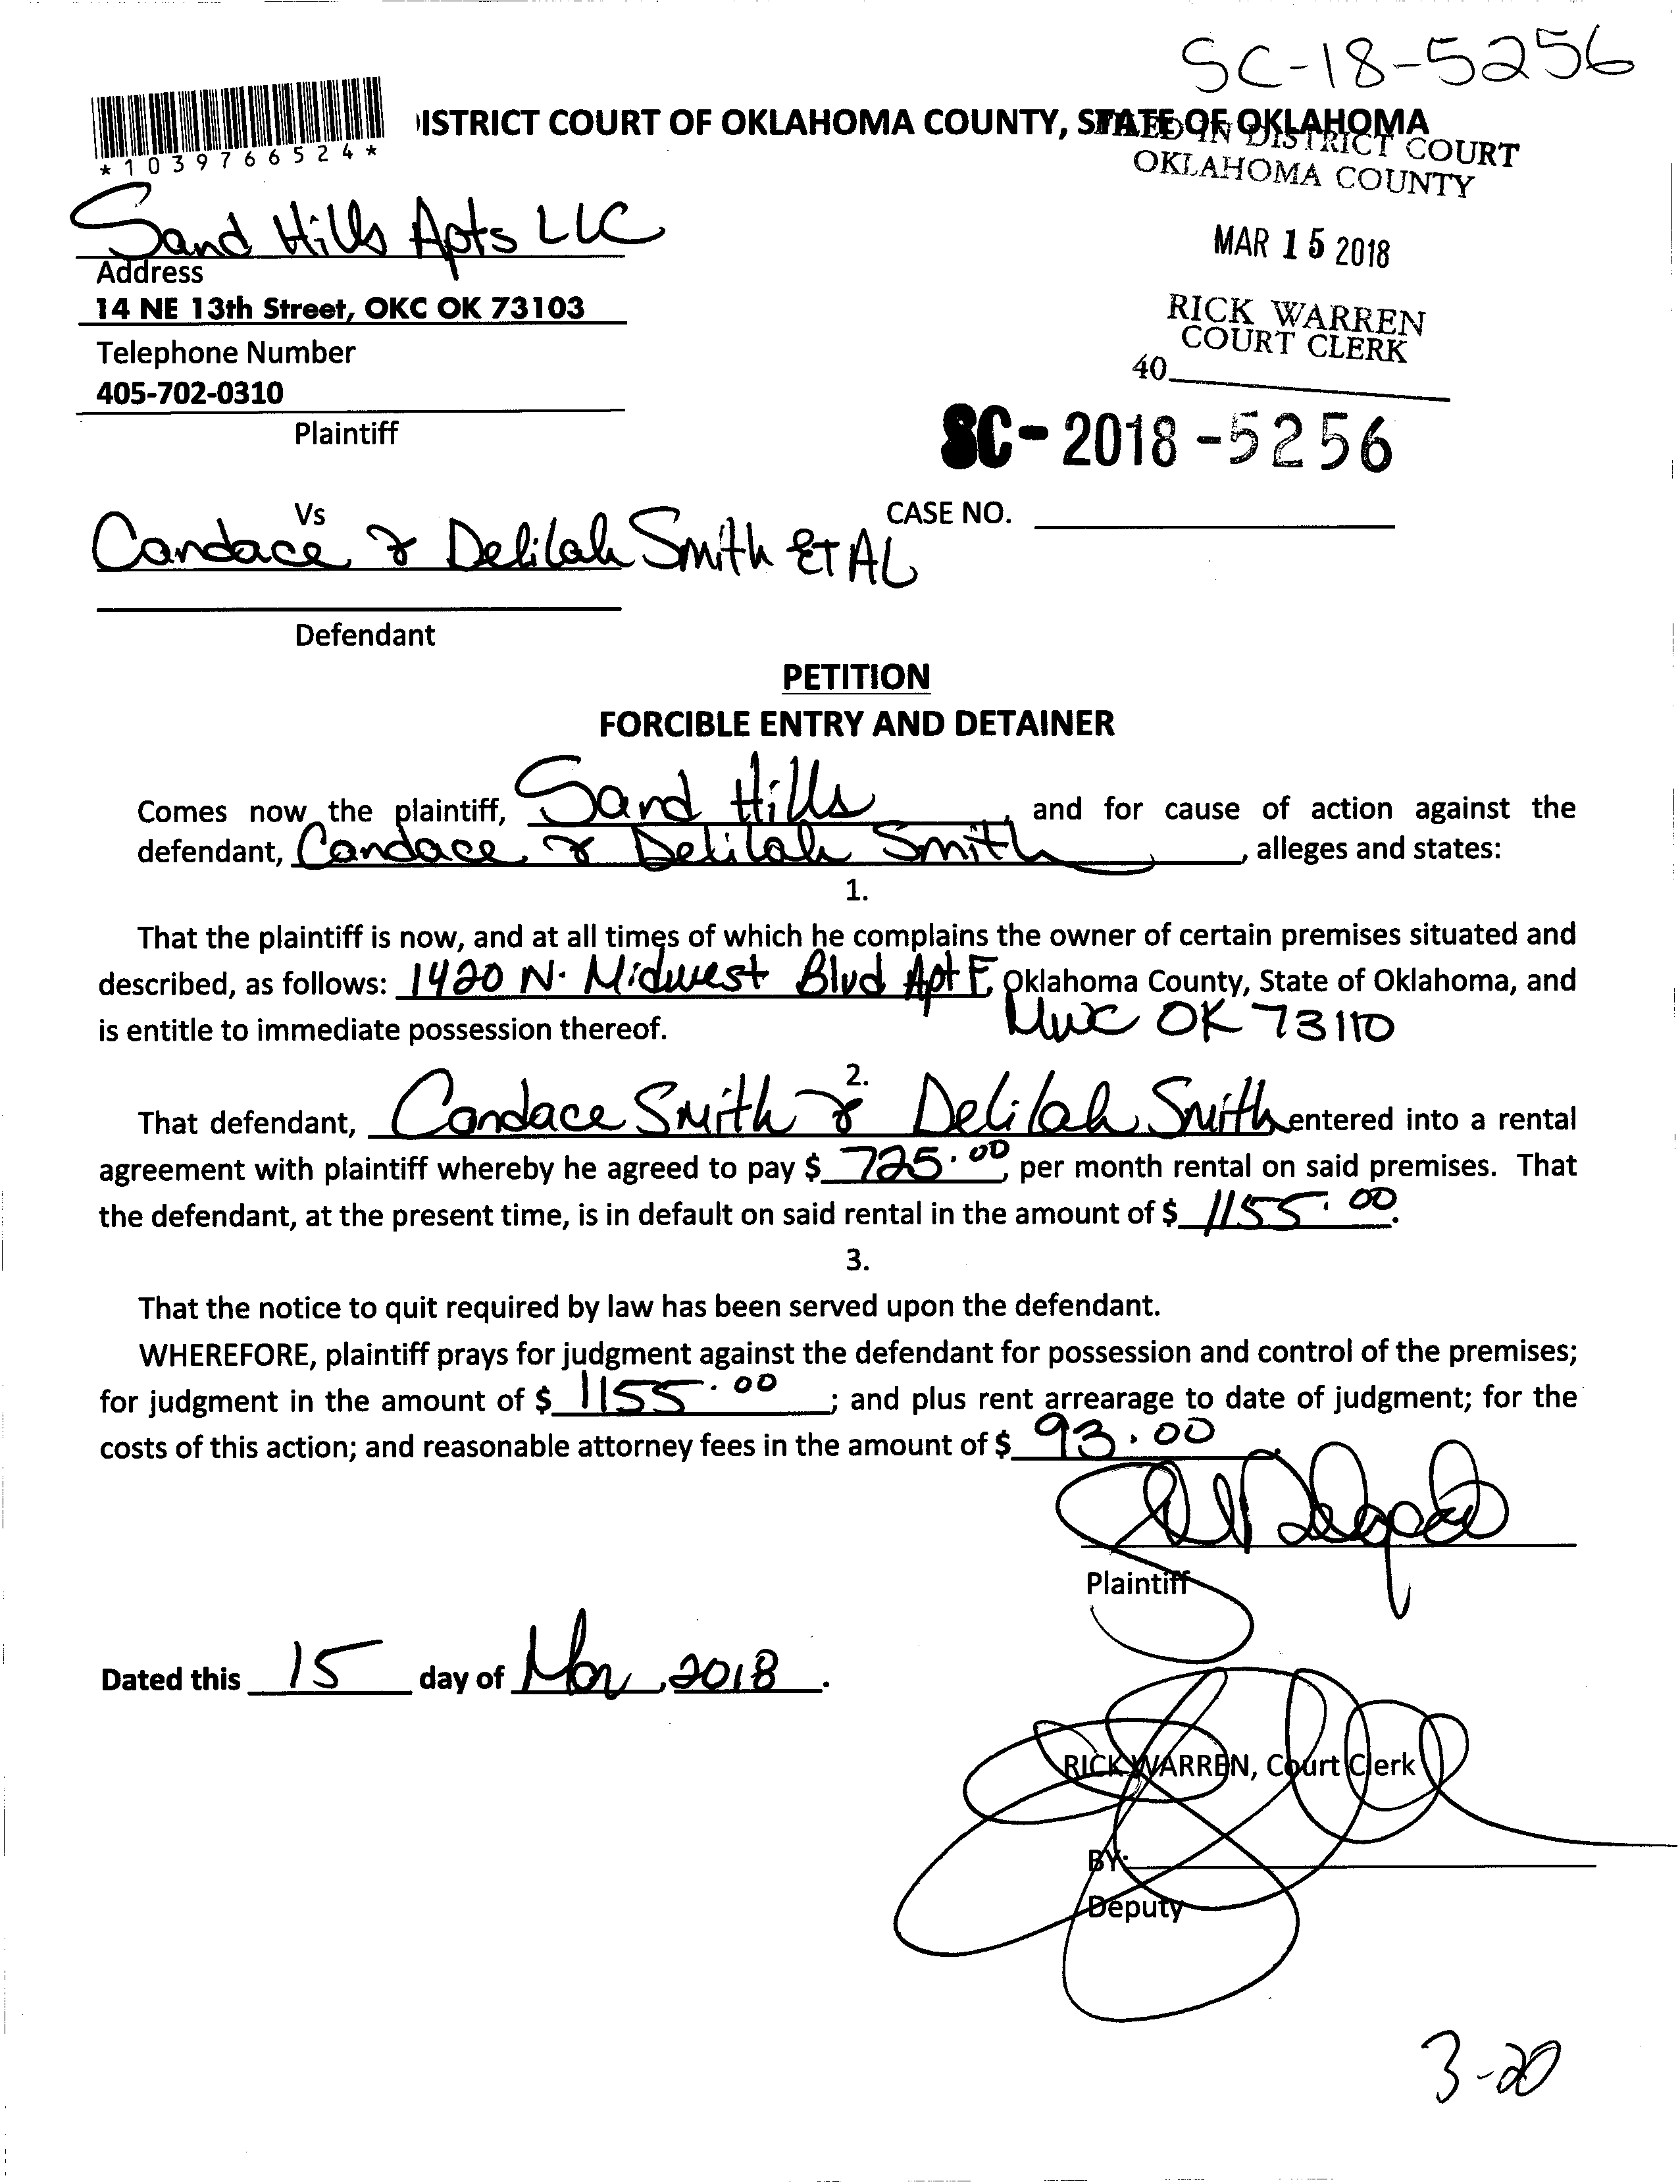 SC-18-5256
*1039766524*
ISTRICT COURT OF OKLAHOMA COUNTY, STATE OF OKLAHOMA
FILED IN DISTRICT COURT
OKLAHOMA COUNTY
Sand Hills Apts LLC
MAR 15 2018
Address
14 NE 13th Street, OKC OK 73103
RICK WARREN
COURT CLERK
Telephone Number
40
405-702-0310
Plaintiff
SC-2018-5256
Vs
CASE NO.
Candace & Delilah Smith ET AL
Defendant
PETITION
FORCIBLE ENTRY AND DETAINER
Comes now the plaintiff, Sand Hills, and for cause of action against the
defendant, Candace & Delilah Smith, alleges and states:
1.
That the plaintiff is now, and at all times of which he complains the owner of certain premises situated and
described, as follows: 1420 N. Midwest Blvd Apt F, Oklahoma County, State of Oklahoma, and
is entitle to immediate possession thereof. MWC OK 73110
2.
That defendant, Candace Smith & Delilah Smith entered into a rental
agreement with plaintiff whereby he agreed to pay $ 725.00, per month rental on said premises. That
the defendant, at the present time, is in default on said rental in the amount of $ 1155.00.
3.
That the notice to quit required by law has been served upon the defendant.
WHEREFORE, plaintiff prays for judgment against the defendant for possession and control of the premises;
for judgment in the amount of $ 1155.00; and plus rent arrearage to date of judgment; for the
costs of this action; and reasonable attorney fees in the amount of $ 93.00
Plaintiff
Dated this 15 day of Mar, 2018.
RICK WARREN, Court Clerk
BY:
Deputy
3-20